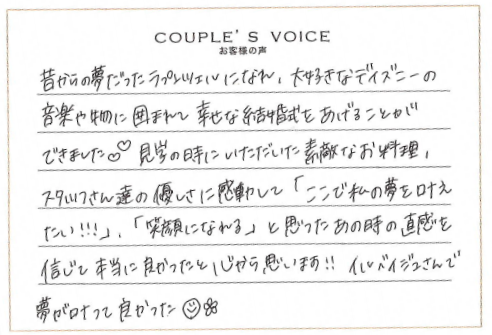 COUPLE'S VOICE
お客様の声
昔からの夢だったラプンツェルになれ、大好きなディズニーの
音楽や物に囲まれて幸せな結婚式をあげることが
できました♡♡ 見学の時にいただいた素敵なお料理、
スタッフさん達の優しさに感動して「ここで私の夢を叶え
たい!!!」、「笑顔になれる」と思ったあの時の直感を
信じて本当に良かったと心から思います!! イルベイジュさんで
夢が叶って良かった☺✿